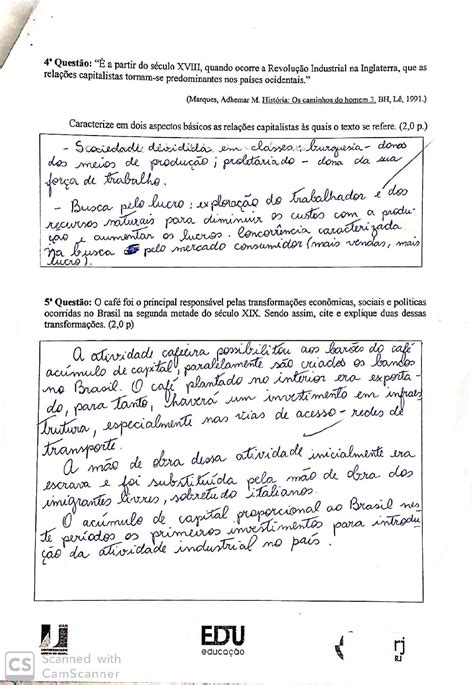 4ª Questão: "É a partir do século XVIII, quando ocorre a Revolução Industrial na Inglaterra, que as
relações capitalistas tornam-se predominantes nos países ocidentais."
(Marques, Adhemar M. História: Os caminhos do homem 2. BH, Lê, 1991.)
Caracterize em dois aspectos básicos as relações capitalistas às quais o texto se refere. (2,0 p.)
- Sociedade dividida em classes: burguesia - donos
dos meios de produção; proletariado - dona da sua
força de trabalho.
- Busca pelo lucro: exploração do trabalhador e dos
recursos naturais para diminuir os custos com a produ-
ção e aumentar os lucros. Concorrência caracterizada
na busca pelo mercado consumidor (mais vendas, mais
lucro).
5ª Questão: O café foi o principal responsável pelas transformações econômicas, sociais e políticas
ocorridas no Brasil na segunda metade do século XIX. Sendo assim, cite e explique duas dessas
transformações. (2,0 p)
A atividade cafeeira possibilitou aos barões do café
acúmulo de capital, paralelamente são criados os bancos
no Brasil. O café plantado no interior era exporta-
do, para tanto, haverá um investimento em infraes
trutura, especialmente nas vias de acesso - redes de
transporte.
A mão de obra dessa atividade inicialmente era
escrava e foi substituída pela mão de obra dos
imigrantes livres, sobretudo italianos.
O acúmulo de capital proporcional ao Brasil nes-
te períodos os primeiros investimentos para introdu-
ção da atividade industrial no país.
EDU
educação
rj
RJ
CS Scanned with
CamScanner